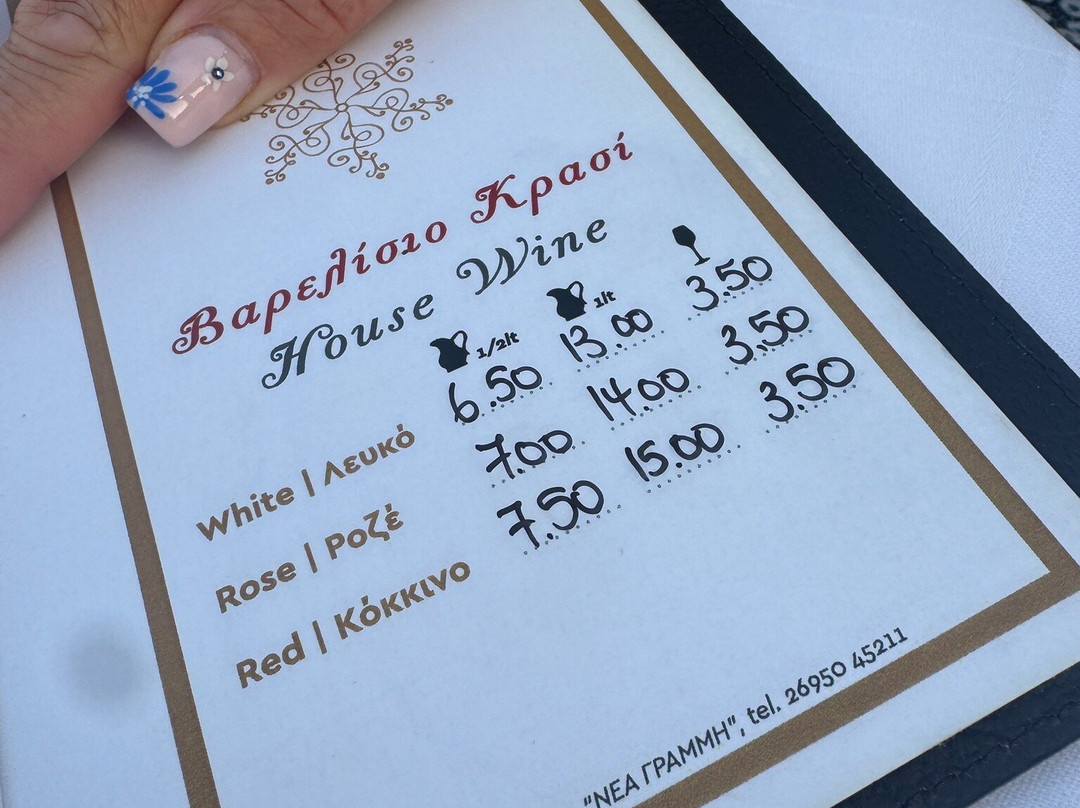 Βαρελίσιο Κρασί
House Wine
1/2lt 1lt
White | Λευκό 6.50 13.00 3.50
Rose | Ροζέ 7.00 14.00 3.50
Red | Κόκκινο 7.50 15.00 3.50
"ΝΕΑ ΓΡΑΜΜΗ", tel. 26950 45211